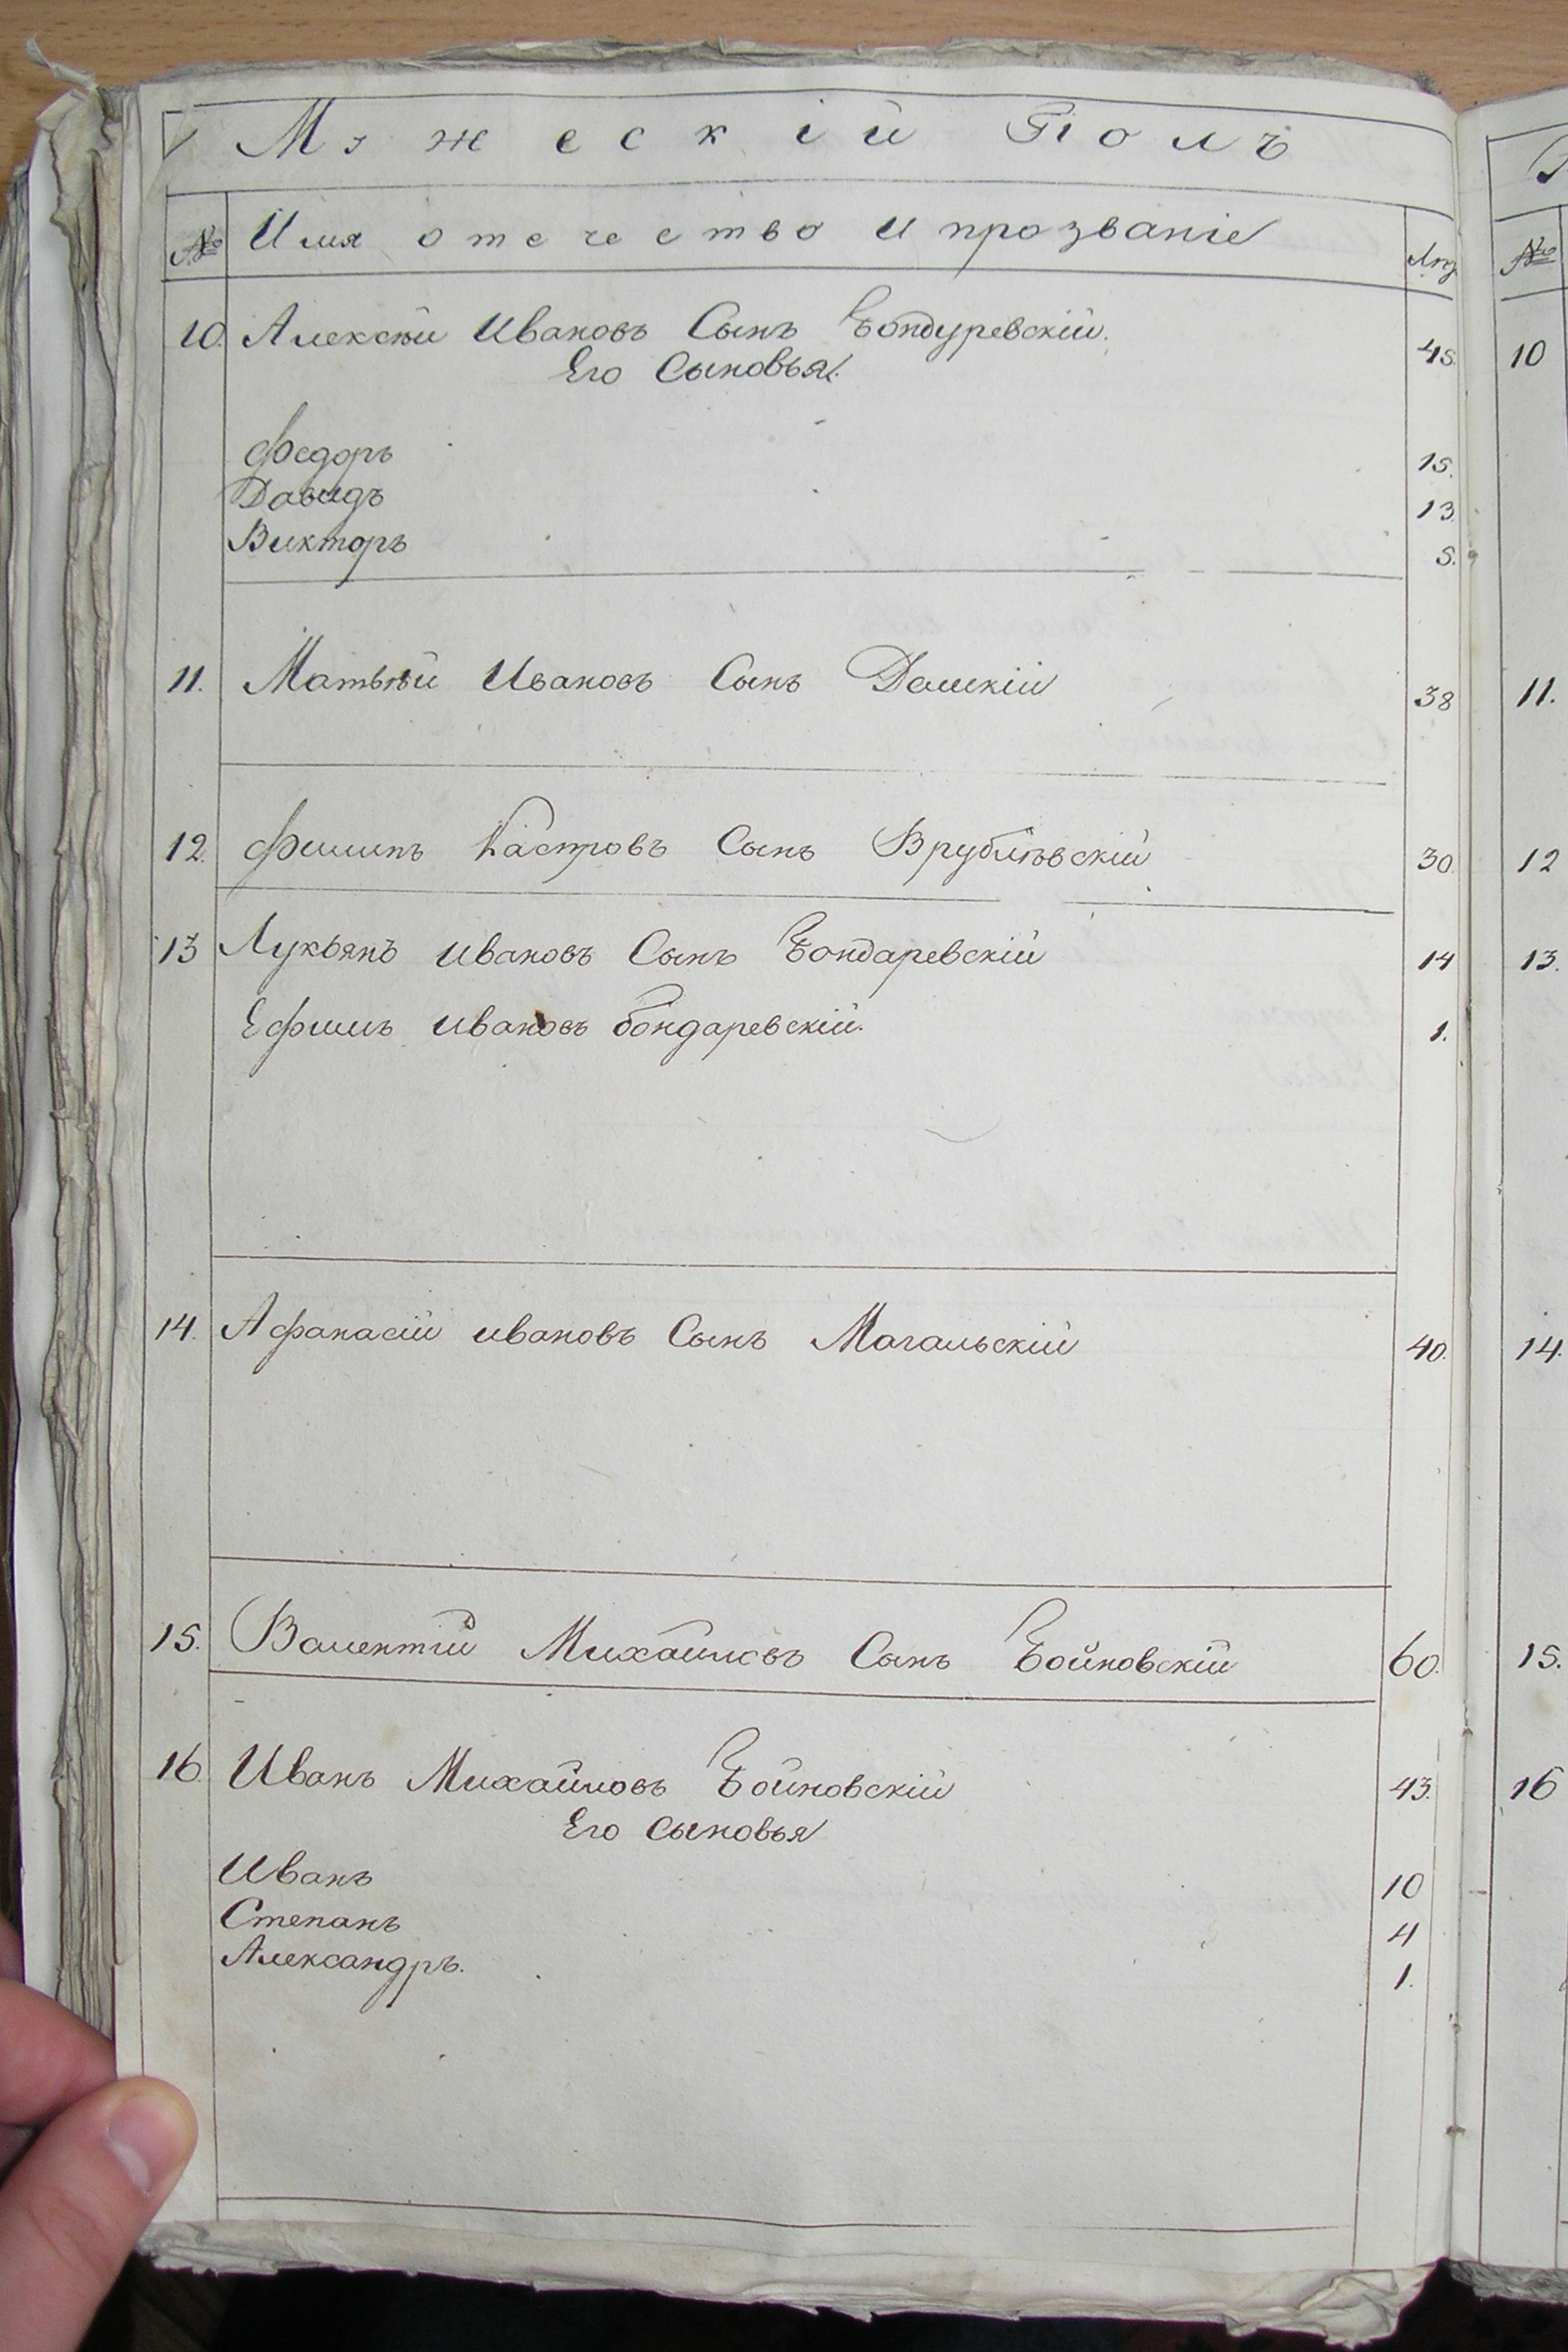 Мужескій Полъ
№ Имя отечество и прозваніе Лѣт
10. Алексѣй Ивановъ Сынъ Бондуревскій. 45.
Его Сыновья.
Федоръ 15.
Давидъ 13.
Викторъ 5.
11. Матвѣй Ивановъ Сынъ Дашкій 38
12. Филипъ Кастровъ Сынъ Врублѣвскій 30.
13 Лукьянъ ивановъ Сынъ Бондаревскій 14
Ефимъ ивановъ бондаревскій. 1.
14. Афанасій ивановъ Сынъ Магальскій 40.
15. Валентій Михайловъ Сынъ Бойновскій 60.
16. Иванъ Михайловъ Бойновскій 43.
Его сыновья
Иванъ 10
Степанъ 4
Александръ. 1.
№
10
11.
12
13.
14.
15.
16